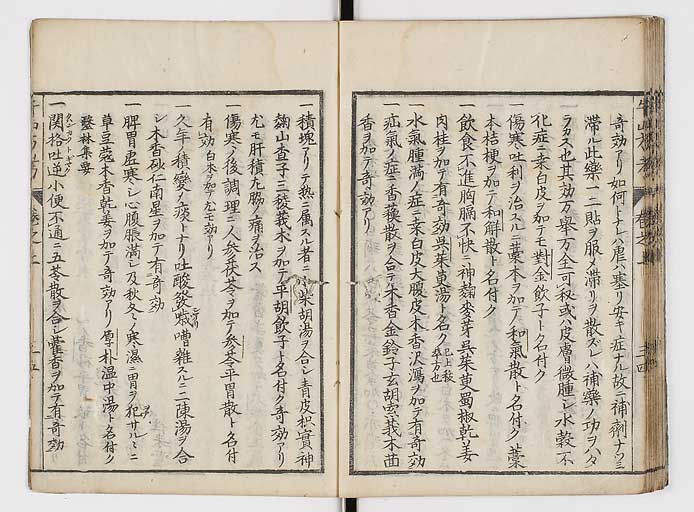 奇効アリ如何トナレハ虚ハ塞リ安キ症ナル故ニ補劑ナツミ
滞ル此藥一二貼ヲ服メ滞リヲ散ズレハ補藥ノ功ヲハタ
ラカス也其効万挙万全可秘或ハ皮膚微腫シ水穀不
化症ニ桑白皮ヲ加テモ對金飲子ト名付ク
一傷寒吐利ヲ治スルニ藁本ヲ加テ和氣散ト名付ク藁
本桔梗ヲ加テ和解散ト名付ク
一飲食不進胸膈不快ニ神麹麦芽呉茱萸蜀椒乾姜
肉桂ヲ加テ有奇効呉茱萸湯ト名ク
一水氣腫満ノ症ニ桑白皮大腹皮木香沢瀉ヲ加テ有奇効
一疝氣ノ症ニ香蘓散ヲ合シ木香金鈴子玄胡索莪朮茴
香ヲ加テ奇効アリ
一積塊アリテ熱ニ属スル者ニ小柴胡湯ヲ合シ青皮枳實神
麹山査子三稜莪朮ヲ加テ平胡飲子ト名付ク奇効アリ
尤モ肝積左脇ノ痛ヲ治ス
一傷寒ノ後調理ニ人参茯苓ヲ加テ参苓平胃散ト名付
有効白朮ヲ加テ尤モ効アリ
一久年ノ積變ノ痰トナリ吐酸發噦嘈雜スルニ二陳湯ヲ合
シ木香砂仁南星ヲ加テ有奇効
一脾胃虚寒シ心腹脹満シ及秋冬ノ寒濕ニ胃ヲ犯サルヽニ
草豆蔲木香乾姜ヲ加テ奇効アリ厚朴温中湯ト名付ク
醫林集要
一関格吐逆小便不通ニ五苓散ヲ合シ藿香ヲ加テ有奇効